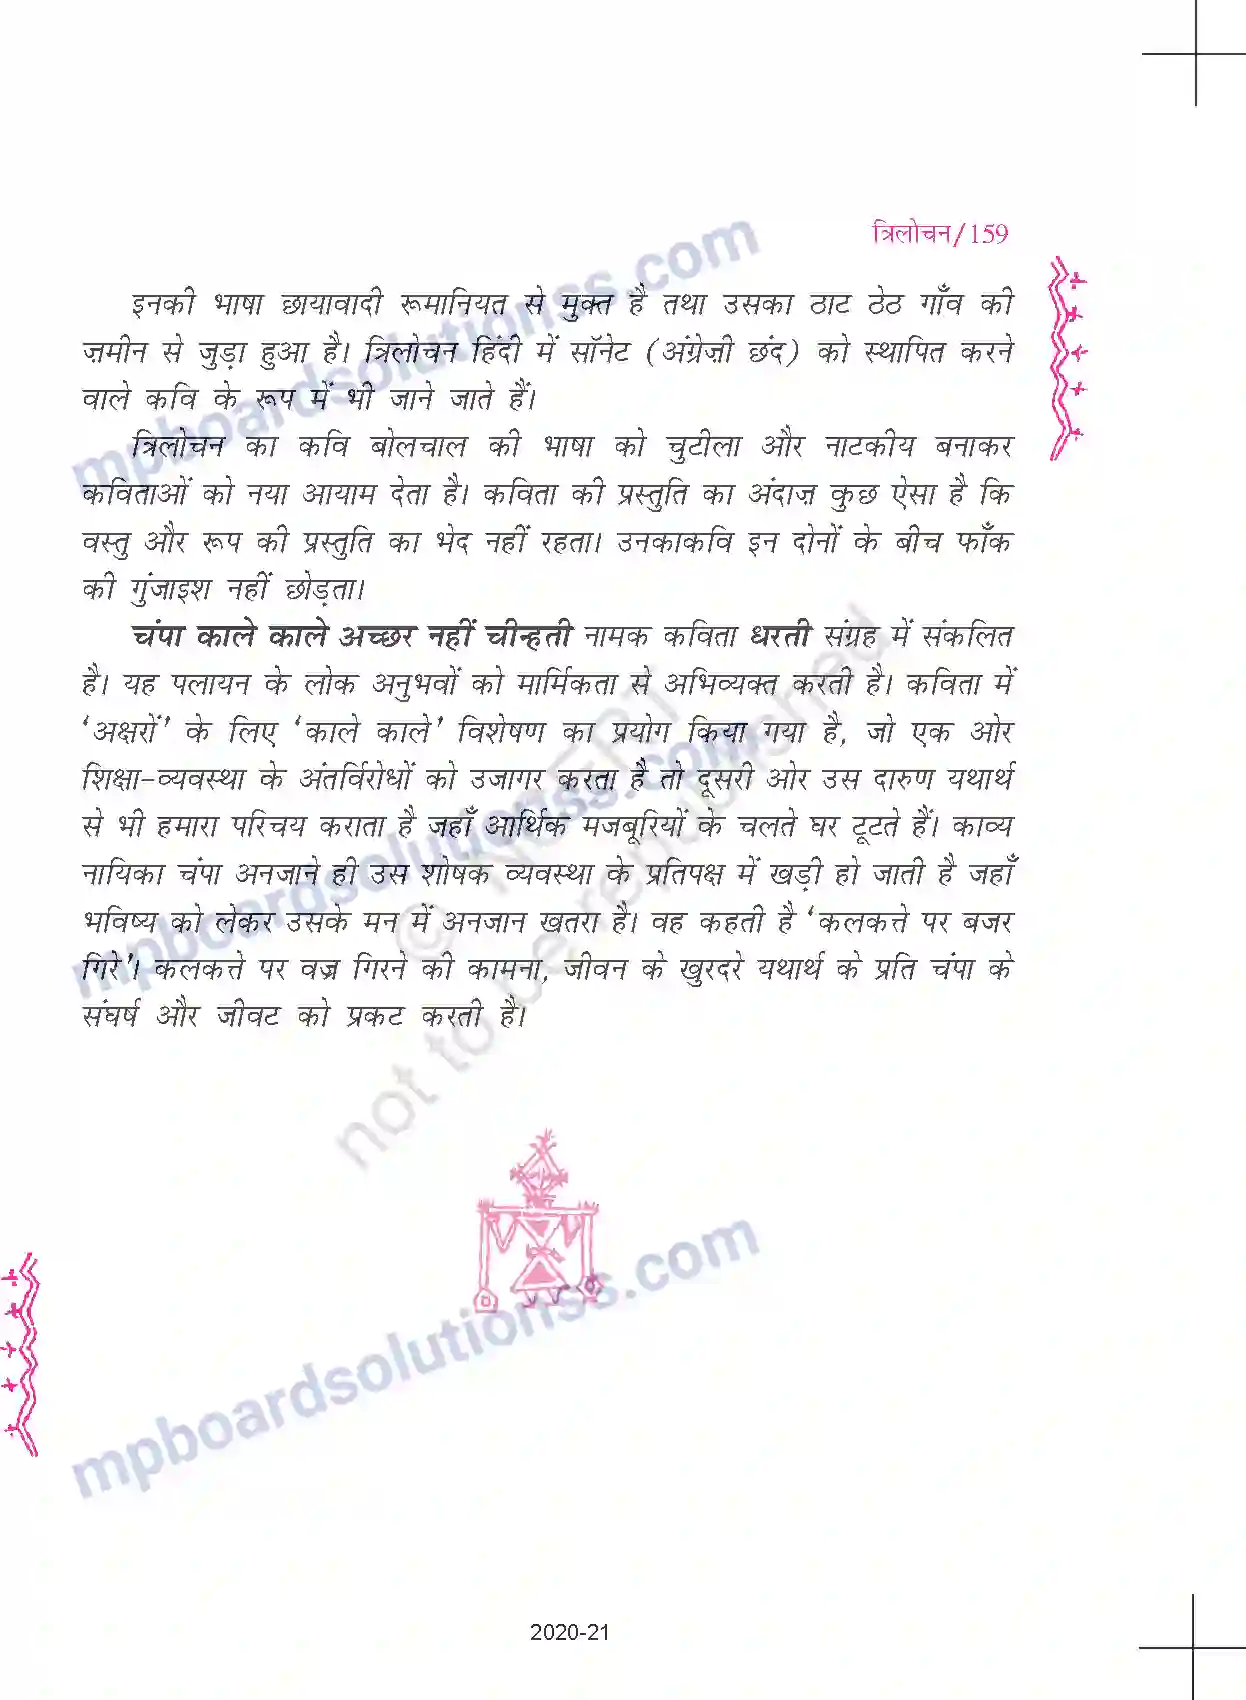 त्रिलोचन/159
इनकी भाषा छायावादी रूमानियत से मुक्त है तथा उसका ठाट ठेठ गाँव की
ज़मीन से जुड़ा हुआ है। त्रिलोचन हिंदी में सॉनेट (अंग्रेज़ी छंद) को स्थापित करने
वाले कवि के रूप में भी जाने जाते हैं।
त्रिलोचन का कवि बोलचाल की भाषा को चुटीला और नाटकीय बनाकर
कविताओं को नया आयाम देता है। कविता की प्रस्तुति का अंदाज़ कुछ ऐसा है कि
वस्तु और रूप की प्रस्तुति का भेद नहीं रहता। उनकाकवि इन दोनों के बीच फाँक
की गुंजाइश नहीं छोड़ता।
चंपा काले काले अच्छर नहीं चीन्हती नामक कविता धरती संग्रह में संकलित
है। यह पलायन के लोक अनुभवों को मार्मिकता से अभिव्यक्त करती है। कविता में
‘अक्षरों’ के लिए ‘काले काले’ विशेषण का प्रयोग किया गया है, जो एक ओर
शिक्षा-व्यवस्था के अंतर्विरोधों को उजागर करता है तो दूसरी ओर उस दारुण यथार्थ
से भी हमारा परिचय कराता है जहाँ आर्थिक मजबूरियों के चलते घर टूटते हैं। काव्य
नायिका चंपा अनजाने ही उस शोषक व्यवस्था के प्रतिपक्ष में खड़ी हो जाती है जहाँ
भविष्य को लेकर उसके मन में अनजान खतरा है। वह कहती है ‘कलकत्ते पर बजर
गिरे’। कलकत्ते पर वज्र गिरने की कामना, जीवन के खुरदरे यथार्थ के प्रति चंपा के
संघर्ष और जीवट को प्रकट करती है।
mpboardsolutionss.com
mpboardsolutionss.com
mpboardsolutionss.com
© NCERT
not to be republished
2020-21